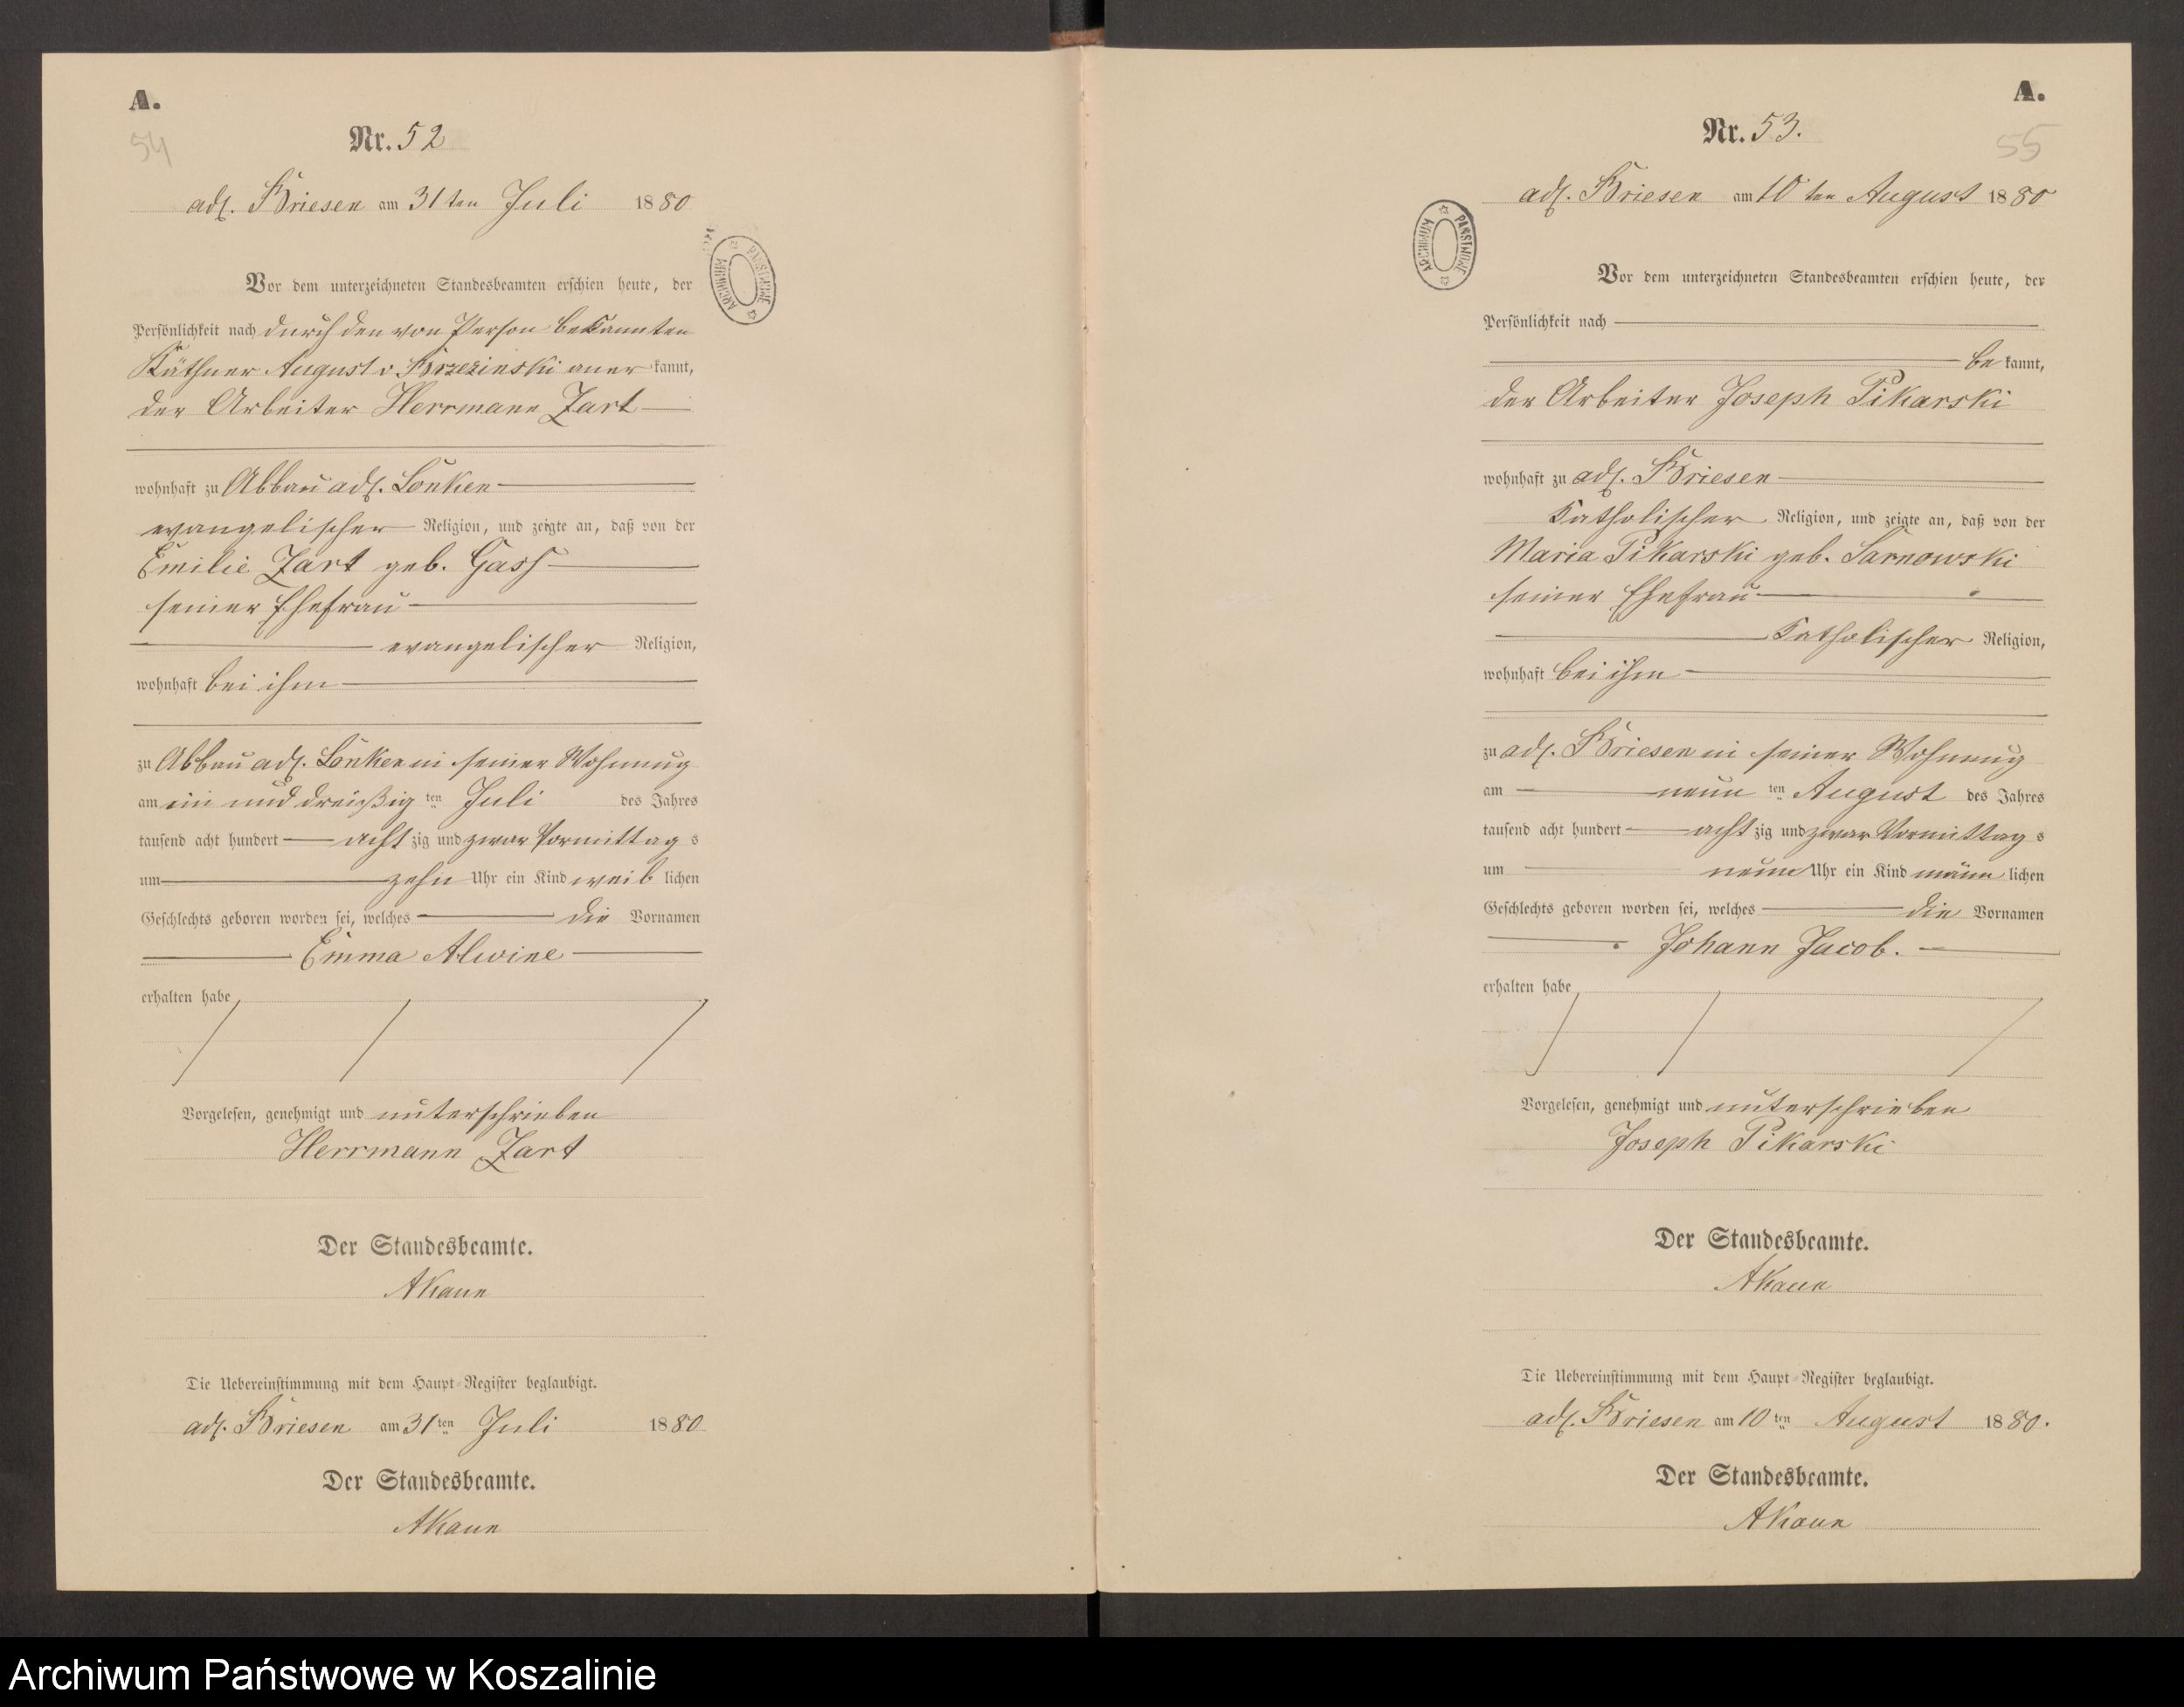 A.
54
Nr. 52
adl. Briesen am 31ten Juli 1880
Vor dem unterzeichneten Standesbeamten erschien heute, der
Persönlichkeit nach durch den von Person bekannten
Käthner August v Brzezinski aner kannt,
der Arbeiter Herrmann Zart
wohnhaft zu Abbau adl. Lonken
evangelischer Religion, und zeigte an, daß von der
Emilie Zart geb. Gass
seiner Ehefrau
evangelischer Religion,
wohnhaft bei ihm
zu Abbau adl. Lonken in seiner Wohnung
am ein und dreißig ten Juli des Jahres
tausend acht hundert acht zig und zwar Vormittag s
um zehn Uhr ein Kind weib lichen
Geschlechts geboren worden sei, welches die Vornamen
Emma Alwine
erhalten habe
Vorgelesen, genehmigt und unterschrieben
Herrmann Zart
Der Standesbeamte.
AKaun
Die Uebereinstimmung mit dem Haupt-Register beglaubigt.
adl. Briesen am 31ten Juli 1880
Der Standesbeamte.
AKaun
ARCHIWUM PAŃSTWOWE
A.
55
Nr. 53.
adl. Briesen am 10ten August 1880
ARCHIWUM PAŃSTWOWE
Vor dem unterzeichneten Standesbeamten erschien heute, der
Persönlichkeit nach
be kannt,
der Arbeiter Joseph Pikarski
wohnhaft zu adl. Briesen
Katholischer Religion, und zeigte an, daß von der
Maria Pikarski geb. Sarnowski
seiner Ehefrau
Katholischer Religion,
wohnhaft bei ihm
zu adl. Briesen in seiner Wohnung
am neun ten August des Jahres
tausend acht hundert acht zig und zwar Vormittag s
um neun Uhr ein Kind männ lichen
Geschlechts geboren worden sei, welches die Vornamen
Johann Jacob.
erhalten habe
Vorgelesen, genehmigt und unterschrieben
Joseph Pikarski
Der Standesbeamte.
AKaun
Die Uebereinstimmung mit dem Haupt-Register beglaubigt.
adl. Briesen am 10ten August 1880.
Der Standesbeamte.
AKaun
Archiwum Państwowe w Koszalinie